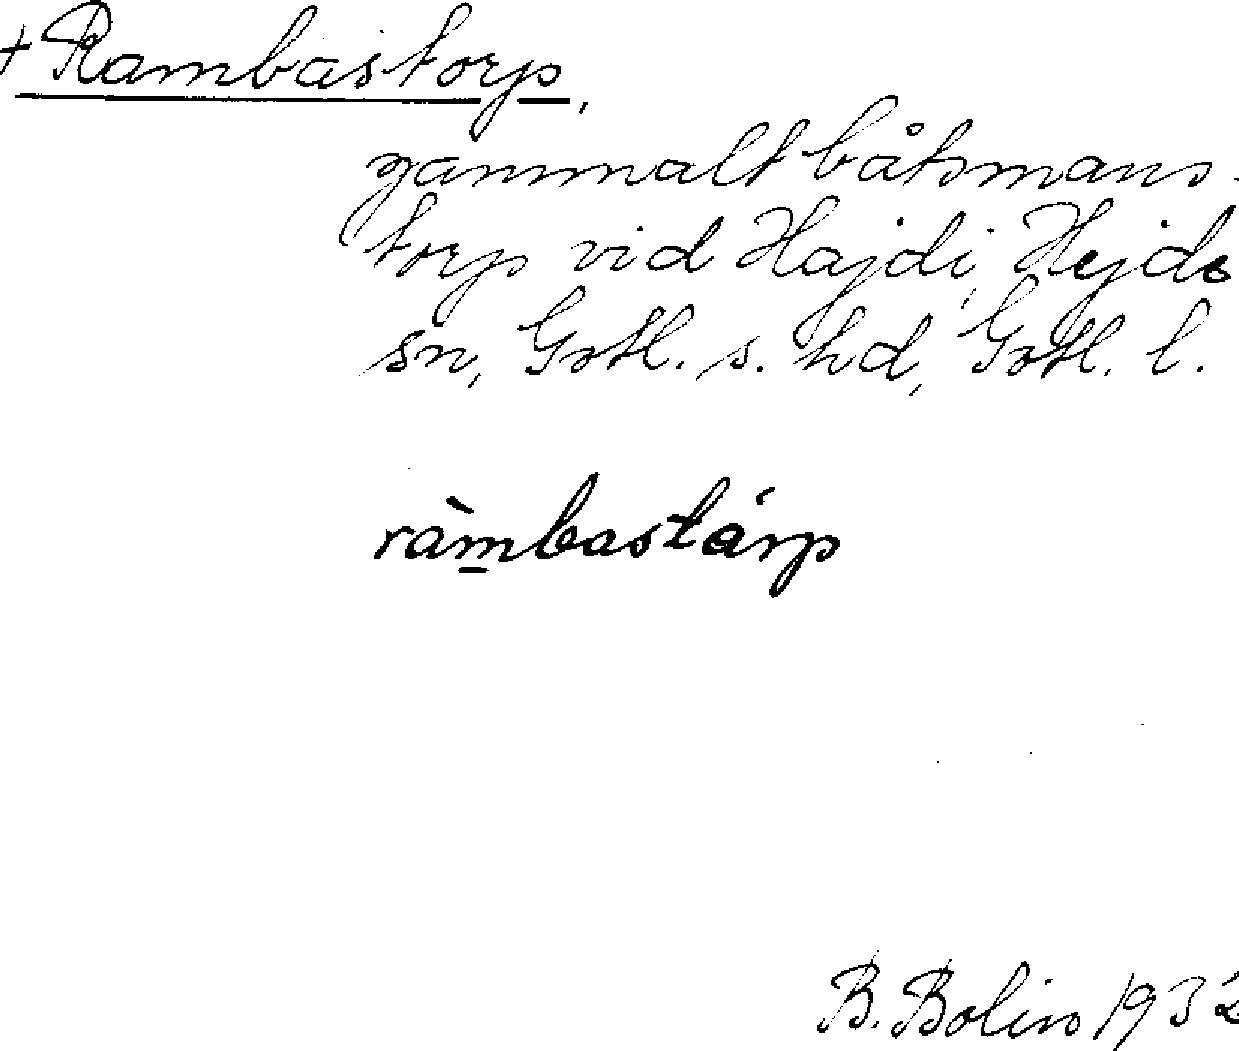 + Rambastorp,
gammalt båtsmans-
torp vid Hajdi, Hejde
sn, Gotl. s. hd, Gotl. l.
ràm̲bastárp
B. Bolin 1932